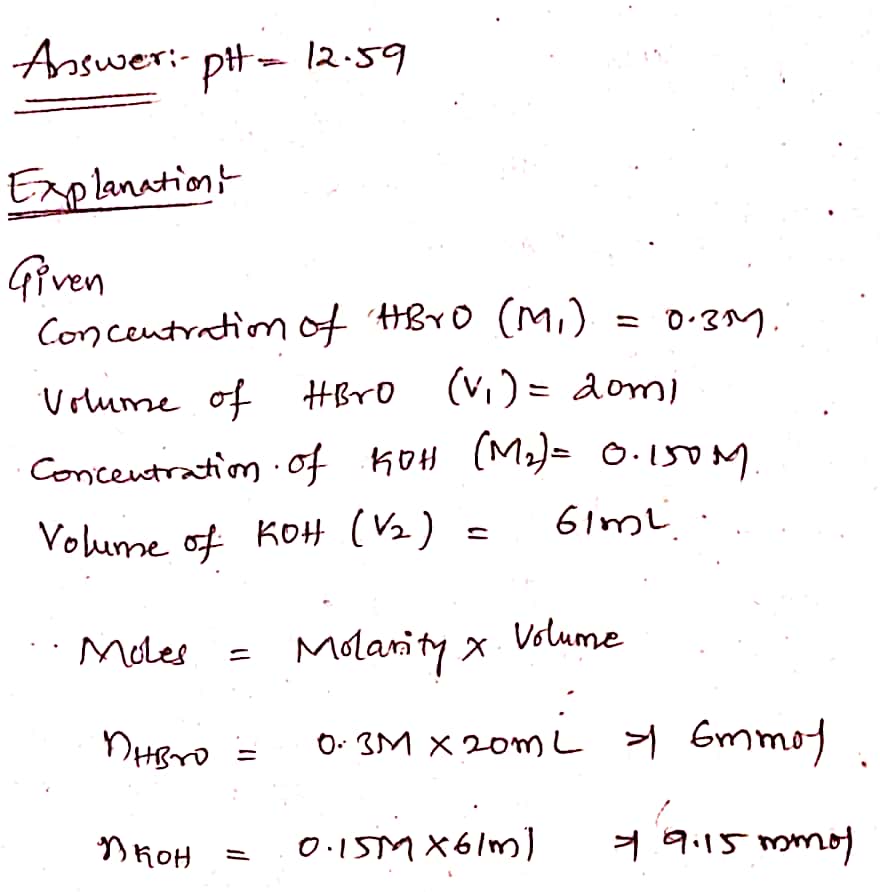 Answer:- pH = 12.59
Explanation:-
Given
Concentration of HBrO (M₁) = 0.3M.
Volume of HBrO (V₁) = 20ml
Concentration of KOH (M₂) = 0.150M.
Volume of KOH (V₂) = 61mL.
Moles = Molarity x Volume
nHBrO = 0.3M x 20mL ⇒ 6mmol
nKOH = 0.15M x 61ml ⇒ 9.15 mmol